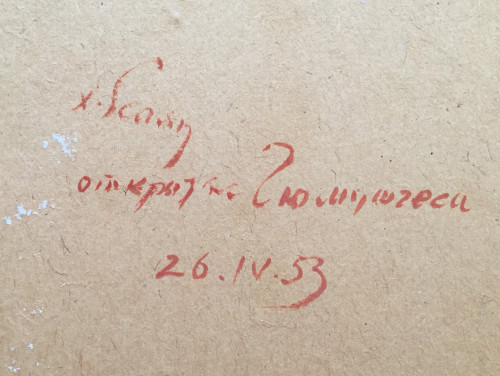 х. Есаян
открытие Гюмушгеса
26.IV.53